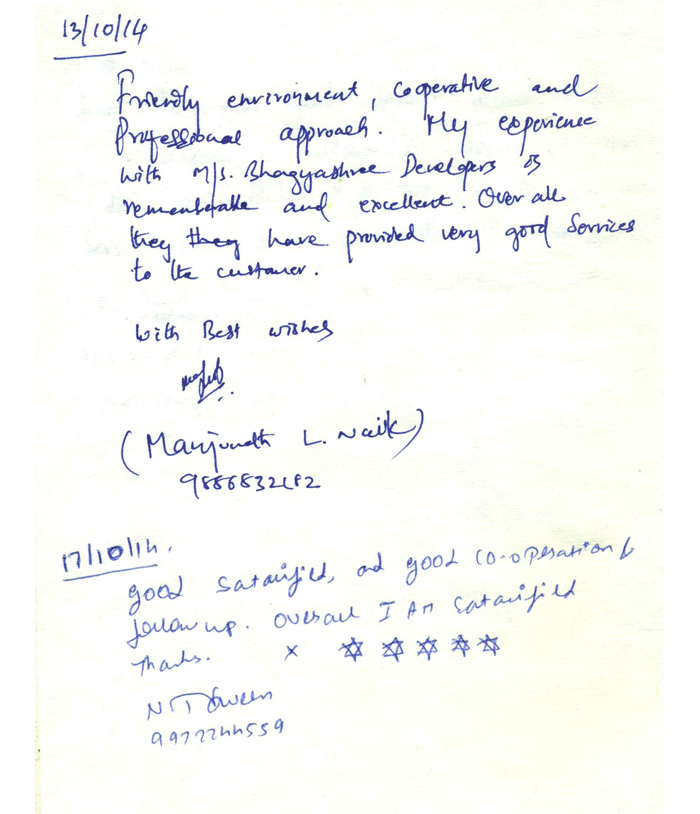 13/10/14
Friendly environment, Cooperative and
Professional approach. My experience
with M/s. Bhagyashree Developers is
rememberable and excellent. Over all
they they have provided very good Services
to the customer.
With Best wishes
(Manjunath L. Naik)
17/10/14.
good Sataisfied, and good co-operation &
follow up. Overall I Am Sataisfied
Thanks. x ✡ ✡ ✡ ✡ ✡
9972244559